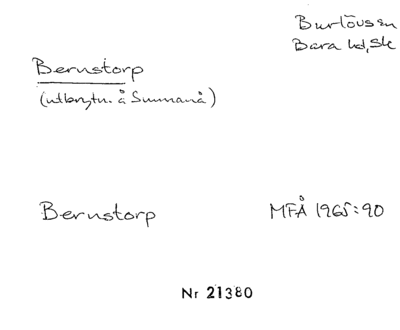 Burlövs sn
Bara hd, Sk
Bernstorp
(utbrytn. å Sunnanå)
Bernstorp MFÅ 1965:90
Nr 21380